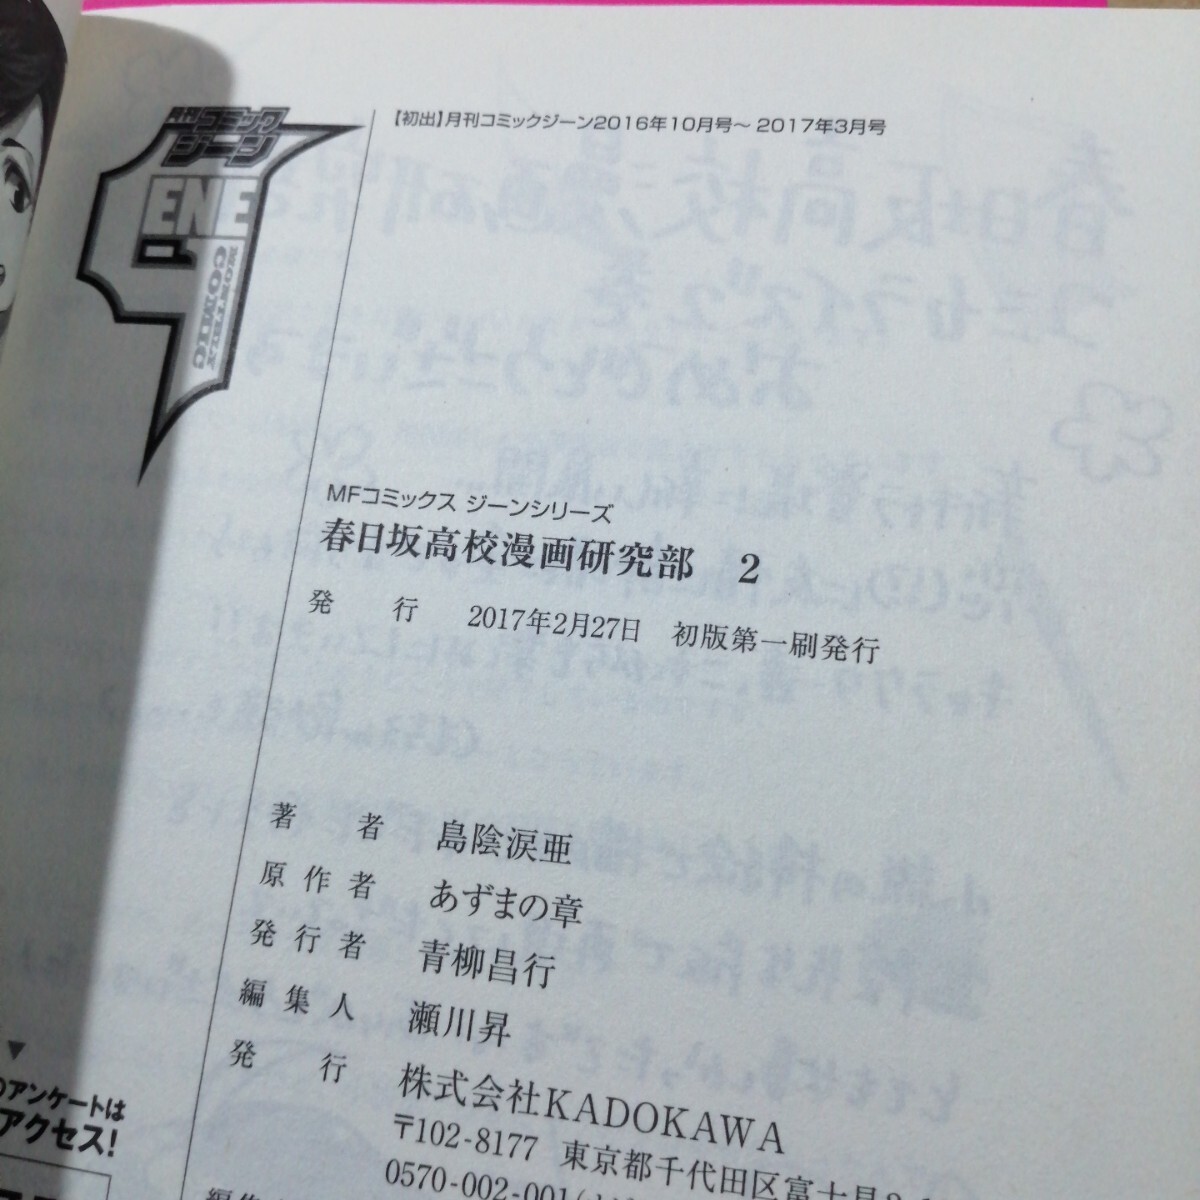 【初出】月刊コミックジーン2016年10月号～2017年3月号
月刊
コミック
ジーン
ENE
MONTHLY
COMIC
MFコミックス ジーンシリーズ
春日坂高校漫画研究部 2
発行 2017年2月27日 初版第一刷発行
著者 島陰涙亜
原作者 あずまの章
発行者 青柳昌行
編集人 瀬川昇
発行 株式会社KADOKAWA
〒102-8177 東京都千代田区富士見2
0570-002-001
編集
▼
のアンケートは
アクセス!